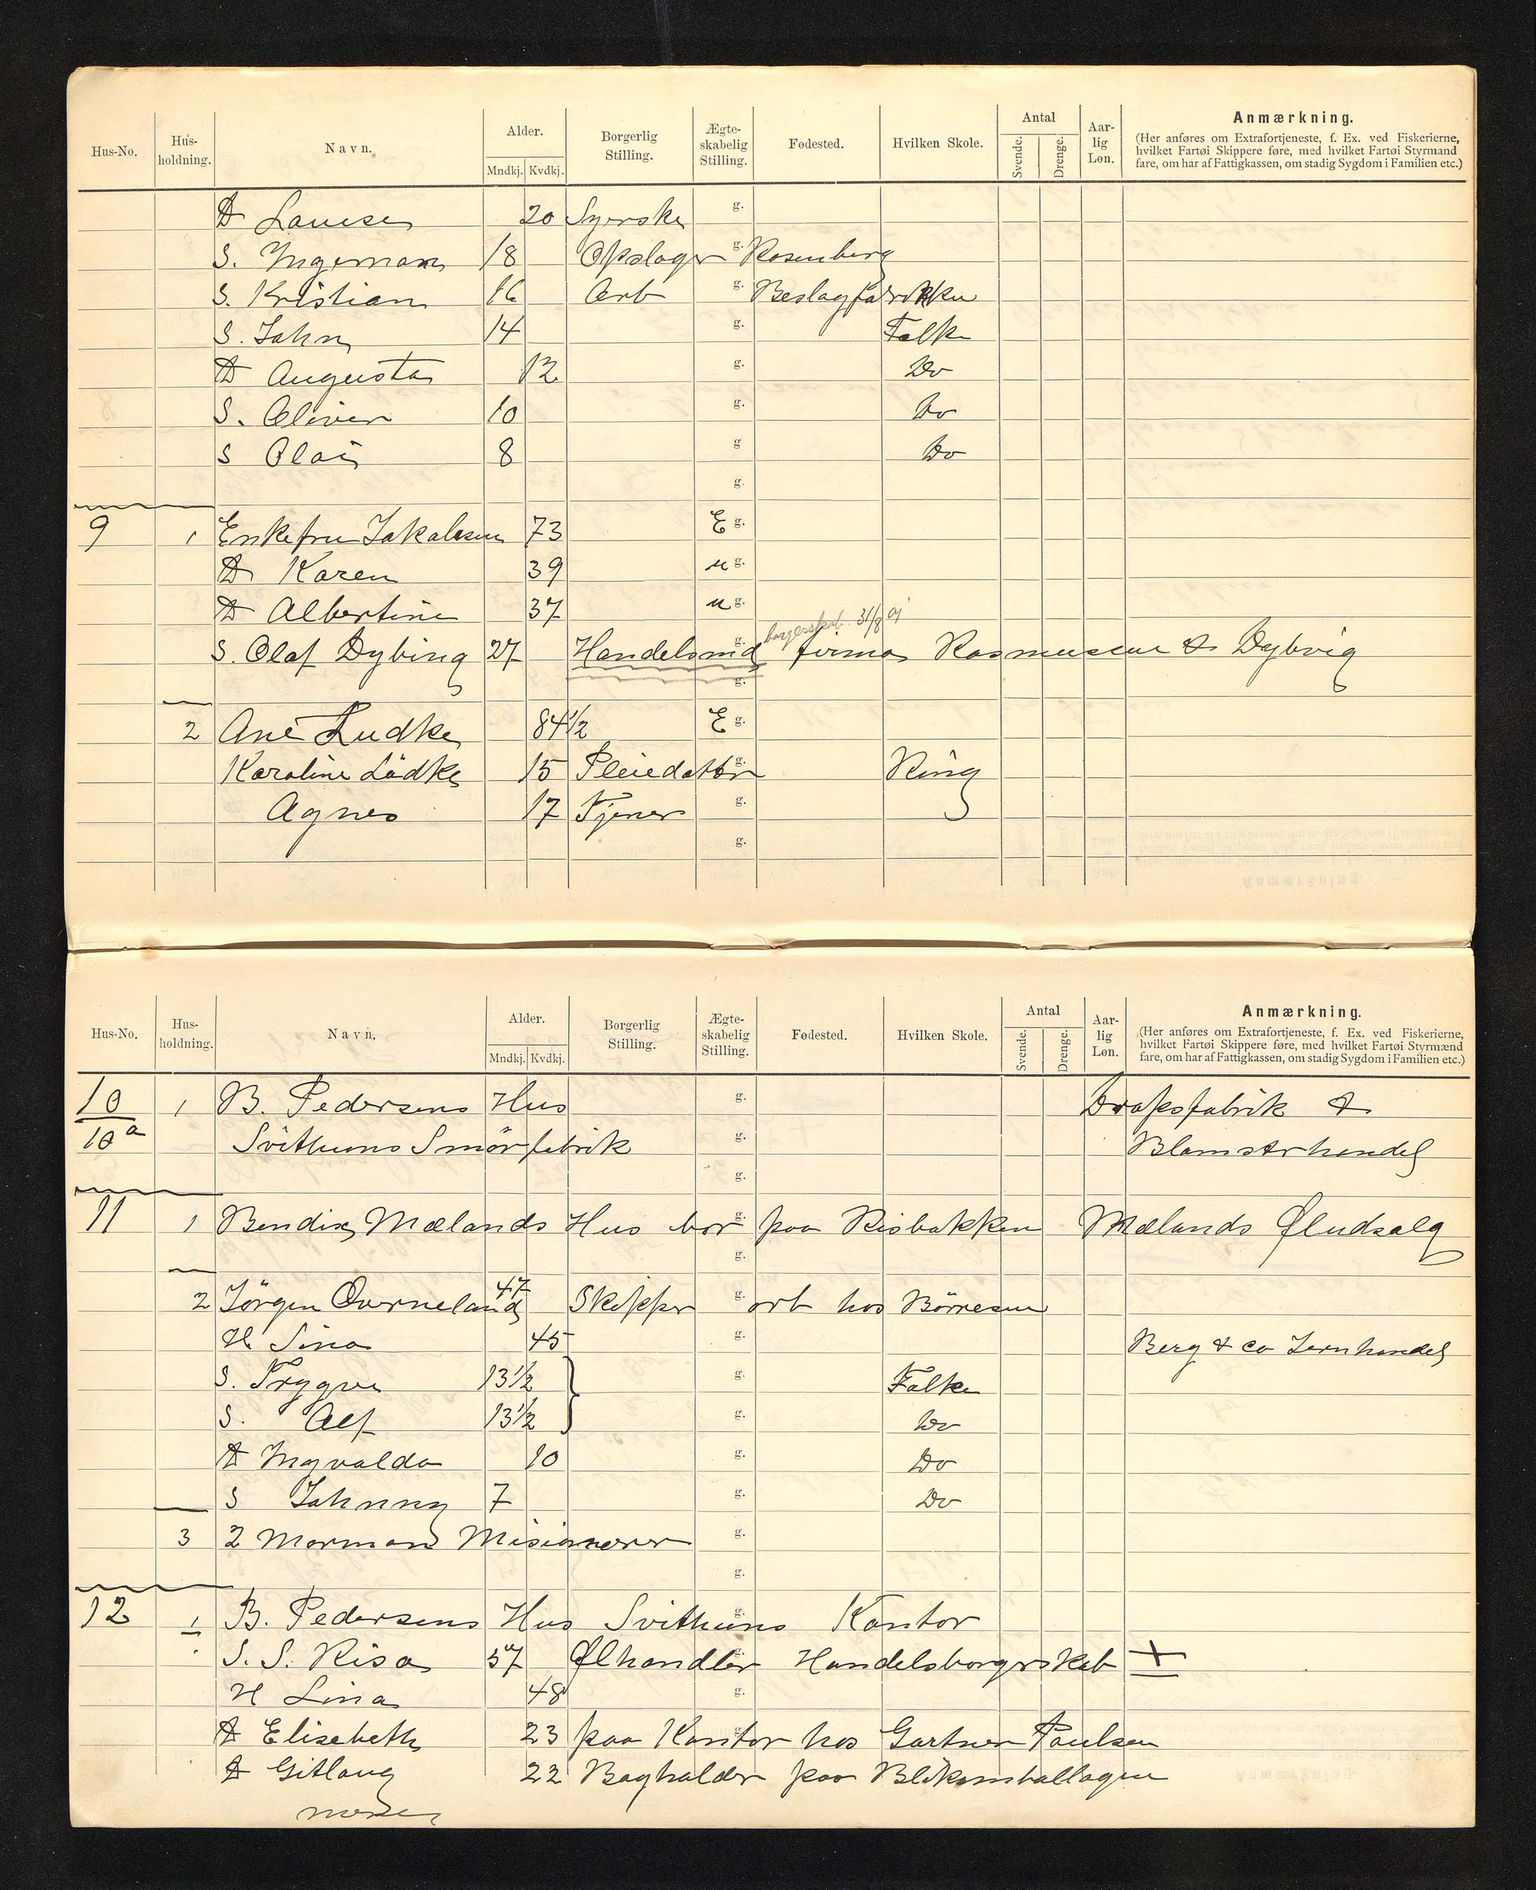 Hus-No. Hus-holdning. Navn. Alder. Mndkj. Kvdkj. Borgerlig Stilling. Ægte-skabelig Stilling. Fødested. Hvilken Skole. Antal Svende. Drenge. Aar-lig Løn. Anmærkning.
(Her anføres om Extrafortjeneste, f. Ex. ved Fiskerierne,
hvilket Fartøi Skippere føre, med hvilket Fartøi Styrmænd
fare, om har af Fattigkassen, om stadig Sygdom i Familien etc.)
D Louise 20 Syerske g.
S. Ingeman 18 Opslager g. Rosenberg
S. Kristian 16 Arb g. Beslagfabrikken
S. John 14 g. Folke
D Augusta 12 g. Do
S. Oliver 10 g. Do
S Olai 8 g. Do
g.
9 1 Enkefru Jakobsen 73 E g.
D Karen 39 u g.
D Albertine 37 u g.
borgerskab 31/8 01
S. Olaf Dybing 27 Handelsmd g. firma Rasmussen & Dybvig
g.
2 Ane Ludke 84½ E g.
Karoline Lüdke 15 Pleiedatter g. Kong
Agnes 17 Tjener g.
g.
Hus-No. Hus-holdning. Navn. Alder. Mndkj. Kvdkj. Borgerlig Stilling. Ægte-skabelig Stilling. Fødested. Hvilken Skole. Antal Svende. Drenge. Aar-lig Løn. Anmærkning.
(Her anføres om Extrafortjeneste, f. Ex. ved Fiskerierne,
hvilket Fartøi Skippere føre, med hvilket Fartøi Styrmænd
fare, om har af Fattigkassen, om stadig Sygdom i Familien etc.)
10 1 B. Pedersens Hus g. Dropsfabrik &
10a Svithuns Smörfabrik g. Blomsterhandel
g.
11 1 Bendix Mælands Hus bor g. paa Risbakken Mælands Øludsalg
g.
2 Jörgen Overneland 47 Skipper g. arb hos Börresen
H Sina 45 g. Berg & co Jernhandel
S. Trygve 13½ g. Folke
S. Alf 13½ g. Do
D Ingvalda 10 g. Do
S Johnny 7 g. Do
3 2 Mormon Misionærer g.
g.
12 1 B. Pedersens Hus Svithuns g. Kontor
S. S. Risa 57 Ølhandler g. Handelsborgerskab +
H Lina 48 g.
D Elisabeth 23 paa Kontor g. hos Gartner Poulsen
D Gitlaug 22 Bogholder paa Blikemballagen